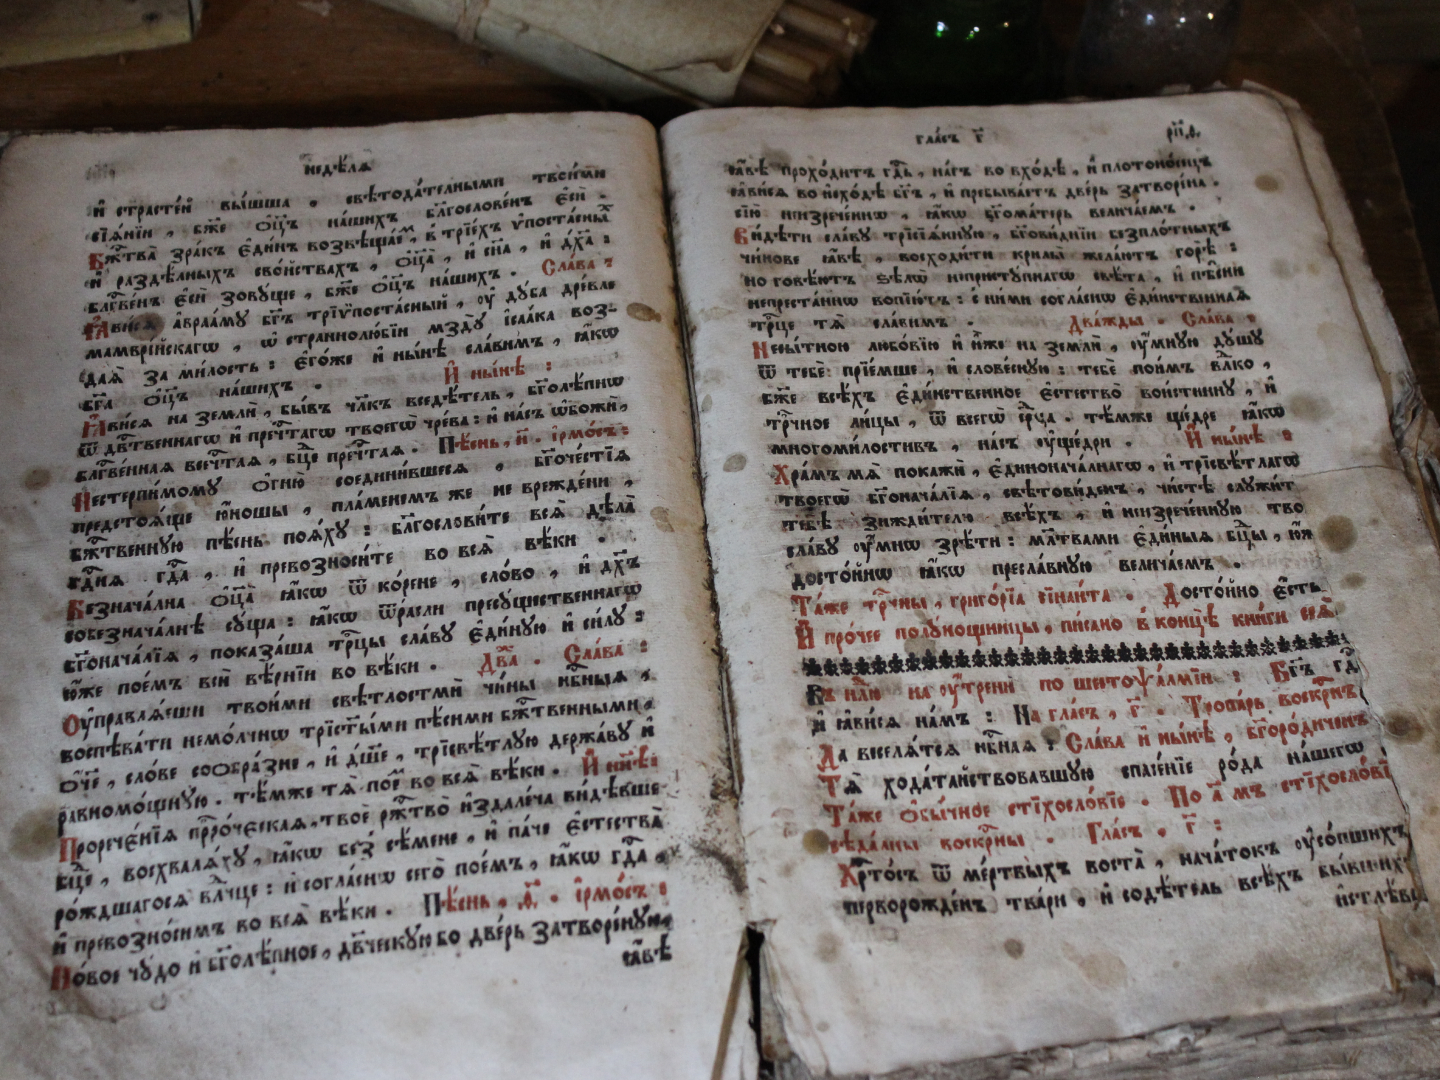 недѣ́лѧ
и҆ страсте́й вы́шша . свѣтода́телными твои́ми
сїѧ́нїи , бж҃е ѻ҆ц҃ъ на́шихъ благослове́нъ є҆сѝ .
Бж҃тва̀ зра́къ є҆ди́нъ возвѣща́ет , в трїе́хъ ѵ҆поста́сныѧ
и҆ разде́лныхъ сво́йствахъ , ѻ҆ц҃а̀ , и҆ сн҃а , и҆ дх҃а :
блгⷭ҇ве́нъ є҆сѝ зовꙋ́ще , бж҃е ѻ҆ц҃ъ на́шихъ . Сла́ва :
Ꙗ҆ви́сѧ а҆враа́мꙋ бг҃ъ трїѵ҆поста́сный , ᲂу҆ дꙋ́ба дре́вле
мамврі́йскагѡ , ѡ҆ страннолю́бїи мздꙋ̀ і҆саа́ка воз-
даѧ̀ за ми́лость : є҆го́же и҆ ны́нѣ сла́вимъ , ꙗ҆́кѡ
бг҃а ѻ҆ц҃ъ на́шихъ . И҆ ны́нѣ :
Ꙗ҆ви́сѧ на землѝ , бы́въ чл҃къ вседѣ́тель , бг҃олѣ́пнѡ
ѿ дв҃ственнагѡ и҆ пречⷭ҇тагѡ твоегѡ̀ чре́ва : и҆ на́съ ѡ҆божи̑ ,
блгⷭ҇ве́ннаѧ всечⷭ҇таѧ , бц҃е пречⷭ҇таѧ . Пѣ́снь , и҃ . і҆рмо́съ :
Нестерпи́момꙋ ѻ҆гню̀ соедини́вшесѧ , бг҃оче́стїѧ
предстоѧ́ще ю҆́ношы , пла́менемъ же не врежде́ни ,
бж҃ственнꙋю пѣ́снь поѧ́хꙋ : бл҃гослови́те всѧ̑ дѣла̀
гдⷭ҇нѧ гдⷭ҇а , и҆ превозноси́те во всѧ̑ вѣ́ки .
Безнача́лна ѻ҆ц҃а̀ ꙗ҆́кѡ ѿ ко́рене , сло́во , и҆ дх҃ъ
собезнача́лнѣ сꙋ́ща : ꙗ҆́кѡ ѿрасли пресꙋ́щественнагѡ
бг҃онача́лїѧ , показа́ша трⷪ҇цы сла́вꙋ є҆ди́нꙋю и҆ си́лꙋ :
ю҆́же пое́мъ всѝ вѣ́рнїи во вѣ́ки . Два́ . Сла́ва :
Оу҆правлѧ́еши твои́ми свѣтлостмѝ чи́ны нбⷭ҇ныѧ ,
воспѣва́ти немо́лчнѡ трист҃ы́ми пѣ́сньми бж҃ственными ,
ѻ҆́ч҃е , сло́ве соѻбра́зне , и҆ дш҃е , трисвѣ́тлꙋю держа́вꙋ и҆
равномо́щнꙋю . тѣ́мже тѧ̀ пое́мъ во всѧ̑ вѣ́ки . И҆ нн҃ѣ :
Прорече́нїѧ прⷪ҇ро́ческаѧ . твоѐ ржⷭ҇тво̀ и҆здале́ча ви́дѣвше
бц҃е , восхвалѧ́хꙋ , ꙗ҆́кѡ без сѣ́мене , и҆ па́че є҆стества̀
ро́ждшагосѧ влⷣчце : и҆ согла́снѡ сего̀ пое́мъ , ꙗ҆́кѡ гдⷭ҇а ,
и҆ превозно́симъ во всѧ̑ вѣ́ки . Пѣ́снь . ѳ҃ . і҆рмо́съ :
Но́вое чꙋ́до и҆ бг҃олѣ́пное , дв҃ческꙋю бо две́рь затворе́ннꙋю ,
ꙗ҆́вѣ
гла́съ г҃
ꙗ҆́вѣ прохо́дитъ гдⷭ҇ь , на́гъ во вхо́дѣ , и҆ плотоно́сецъ
ꙗ҆ви́сѧ во и҆схо́дѣ бг҃ъ , и҆ пребыва́етъ две́рь затворе́на .
сїю̀ неизрече́ннѡ , ꙗ҆́кѡ бг҃ома́терь велича́емъ .
Ви́дѣти сла́вꙋ трисїѧ́ннꙋю , бг҃ови́днїи безпло́тныхъ
чи́нове ꙗ҆́вѣ , восходи́ти крилы̀ жела́ютъ горѣ̀ :
но говѣ́ютъ ѕѣлѡ̀ непристꙋ́пнагѡ свѣ́та , и҆ пѣ́сни
непреста́ннѡ вопїю́тъ : с ни́ми согла́снѡ є҆ди́нственнаѧ
трⷪ҇це тѧ̀ сла́вимъ . Два́жды . Сла́ва :
Несы́тною любо́вїю и҆ и҆́же на землѝ , ᲂу҆́мнꙋю дꙋ́шꙋ
ѿ тебѐ прїе́мше , и҆ слове́снꙋю : тебѐ пои́мъ влⷣко ,
бж҃е всѣ́хъ є҆ди́нственное є҆стество̀ вои́стинꙋ , и҆
трⷪ҇чное ли́цы , ѿ всегѡ̀ срⷣца . тѣ́мже ще́дре ꙗ҆́кѡ
многоми́лостивъ , на́съ ᲂу҆ще́дри . И҆ ны́нѣ :
Хра́мъ мѧ̀ покажѝ , є҆диноначалнагѡ , и҆ трисвѣ́тлагѡ
твоегѡ̀ бг҃онача́лїѧ , свѣтови́денъ , чи́стѣ слꙋжи́т
тебѣ̀ зижди́телю всѣ́хъ , и҆ неизрече́ннꙋю тво
сла́вꙋ ᲂу҆́мнѡ зрѣ́ти : мл҃твами є҆ди́ныѧ бц҃ы , ю҆́ж
досто́йнѡ ꙗ҆́кѡ пресла́внꙋю велича́емъ .
Та́же трⷪ҇чны , григо́рїа сїнаи́та . Досто́йно є҆́сть
И҆ про́чее полꙋно́щницы , пи́сано в конце́ кни́ги сеѧ̀
Въ нлⷣю на ᲂу҆́трени по шестоѱа́лмїи : Бг҃ъ гдⷭ҇
и҆ ꙗ҆ви́сѧ на́мъ : На гла́съ , г҃ . Тропа́рь воскрⷭ҇нъ
Да веселѧ́тсѧ нбⷭ҇наѧ : Сла́ва и҆ ны́нѣ , бг҃оро́диченъ
Тѧ̀ хода́тайствовавшꙋю спасе́нїе ро́да на́шегѡ
Та́же ѻ҆бы́чное стїхосло́вїе . По а҃ мъ стїхосло́вї
сѣда́лны воскрⷭ҇ны . Гла́съ . г҃ :
Хрⷭ҇то́съ ѿ ме́ртвыхъ воста̀ , нача́токъ ᲂу҆со́пшихъ
перворожде́нъ тва́ри , и҆ содѣ́тель всѣ́хъ бы́вших